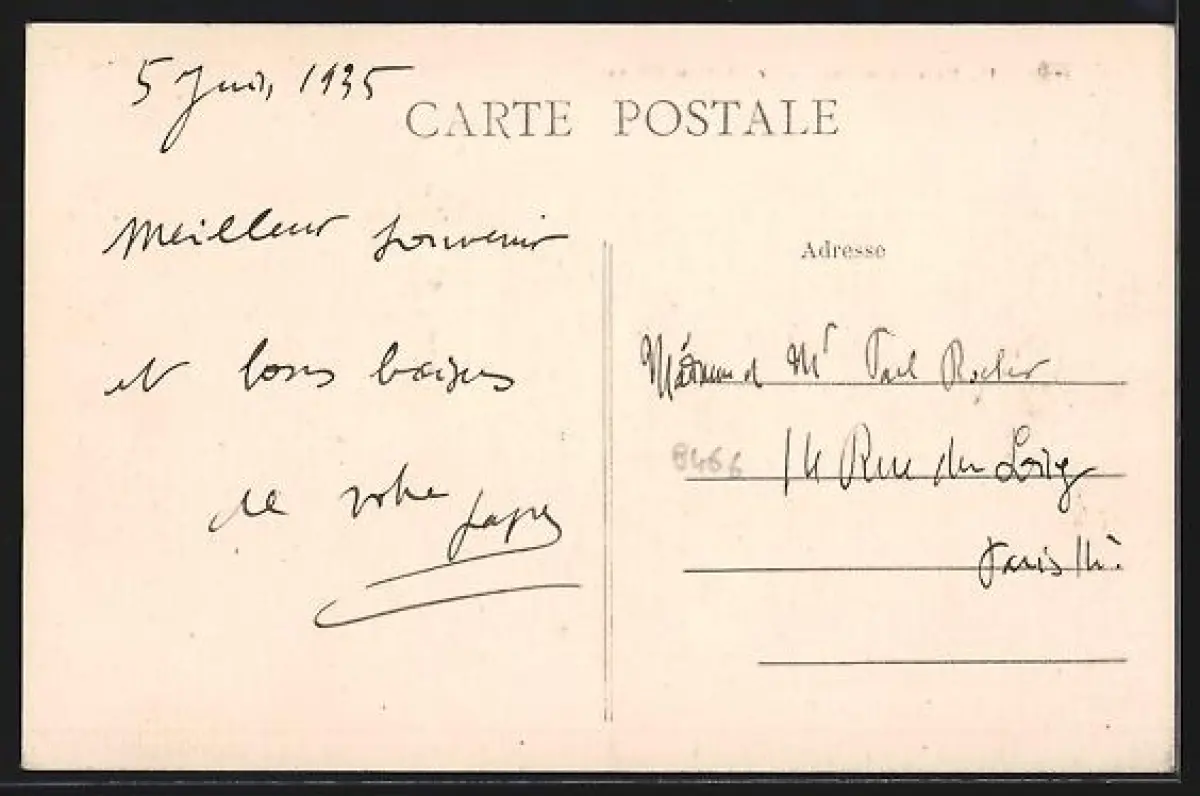 5 Juin 1935
CARTE POSTALE
Meilleur souvenir
et bons baisers
de votre papa
Adresse
et Mr Paul
8466
14 Rue du Loing
Paris 14